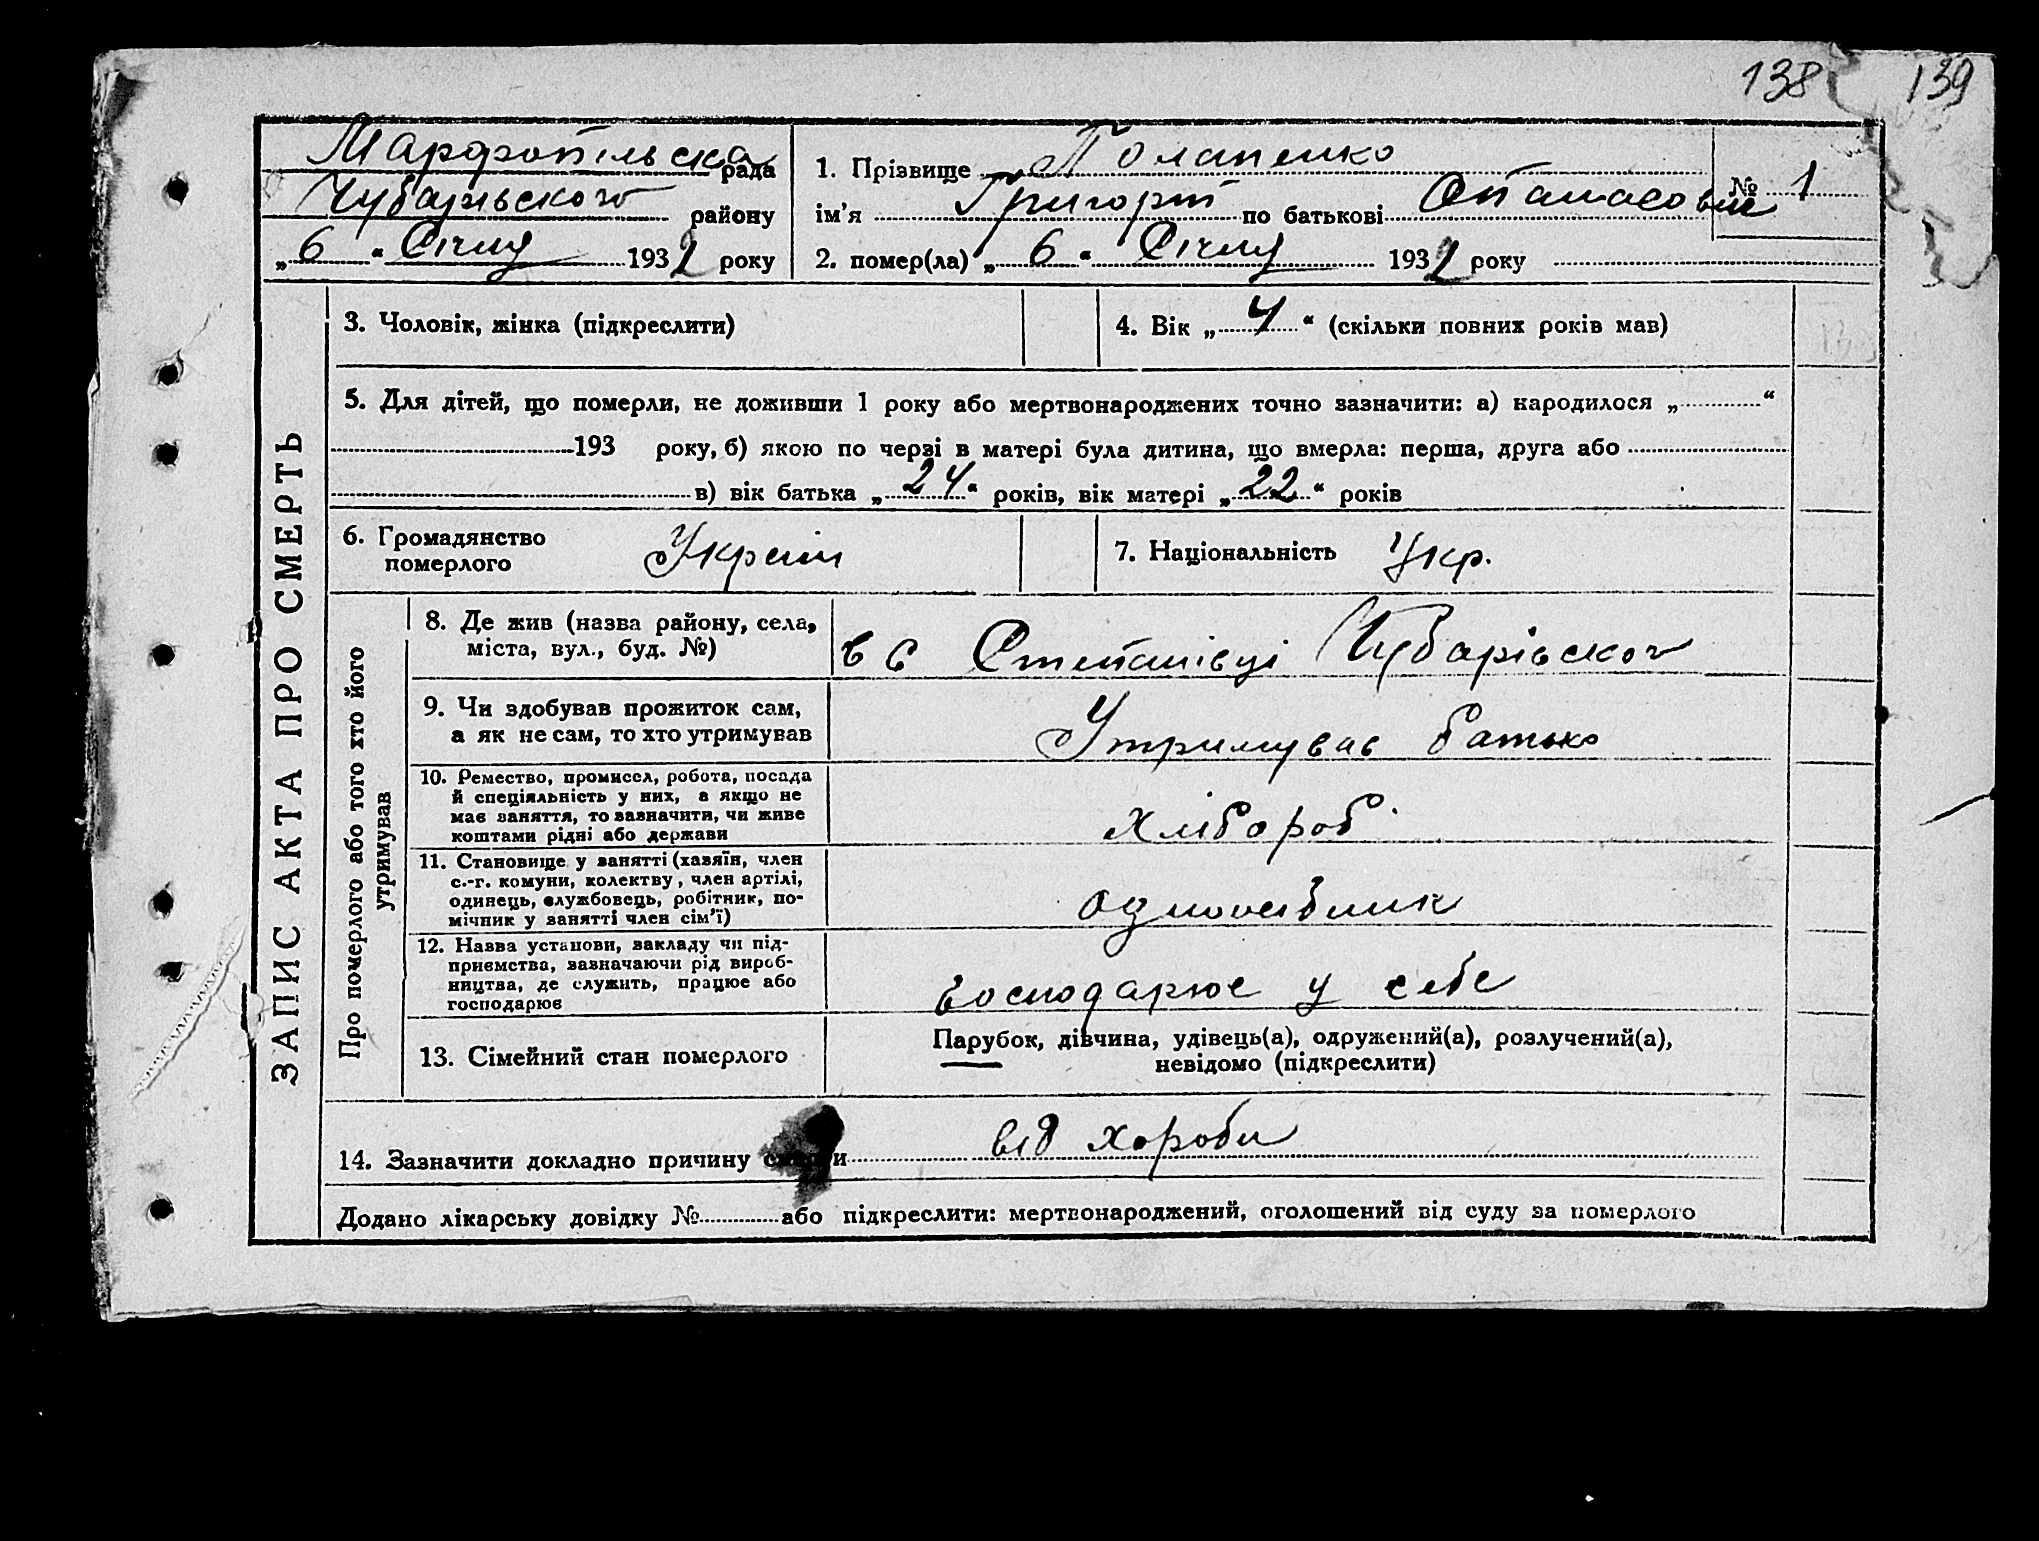 138 139
Марфопільска рада
Чубарівського району
„ 6 “ Січня 1932 року
1. Прізвище Потапенко
ім’я Григорій по батькові Опанасович
№ 1
2. помер(ла) „ 6 “ Січня 1932 року
ЗАПИС АКТА ПРО СМЕРТЬ
3. Чоловік, жінка (підкреслити)
4. Вік „ 4 “ (скільки повних років мав)
5. Для дітей, що померли, не доживши 1 року або мертвонароджених точно зазначити: а) народилося „ “
193 року, б) якою по черзі в матері була дитина, що вмерла: перша, друга або
в) вік батька „ 24 “ років, вік матері „ 22 “ років
6. Громадянство
померлого
7. Національність Укр.
Про померлого або того хто його
утримував
8. Де жив (назва району, села,
міста, вул., буд. №)
в с Степанівці Чубарівског
9. Чи здобував прожиток сам,
а як не сам, то хто утримував
Утримував батько
10. Ремество, промисел, робота, посада
й спеціяльність у них, а якщо не
має заняття, то зазначити, чи живе
коштами рідні або держави
хлібороб
11. Становище у занятті (хазяїн, член
с.-г. комуни, колективу, член артілі,
одинець, службовець, робітник, по-
мічник у занятті член сім’ї)
одноосібник
12. Назва установи, закладу чи під-
приємства, зазначаючи рід вироб-
ництва, де служить, працює або
господарює
Господарює у себе
13. Сімейний стан померлого
Парубок, дівчина, удівець(а), одружений(а), розлучений(а),
невідомо (підкреслити)
14. Зазначити докладно причину від хороби
Додано лікарську довідку № або підкреслити: мертвонароджений, оголошений від суду за померлого